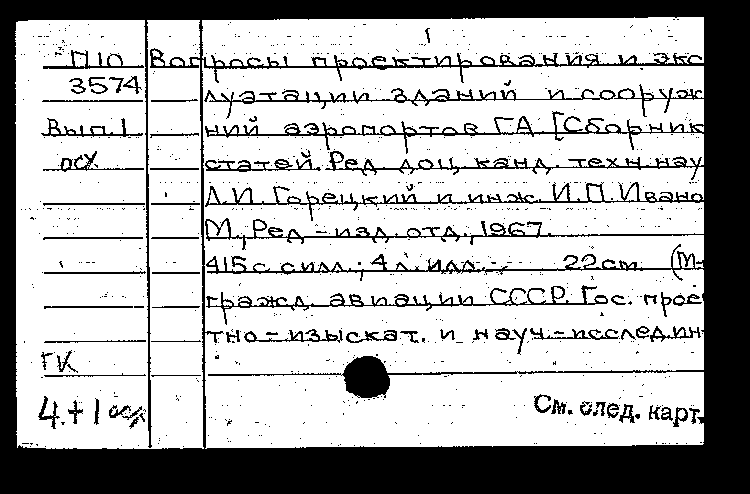 П10 Вопросы проектирования и экс
3574 луатации зданий и сооруж
Вып.1 ний аэропортов ГА [Сборник
осх статей. Ред. доц. канд. техн. нау
Л.И. Горецкий и инж. И.П. Ивано
М., Ред.-изд. отд., 1967.
415 с. с илл.; 4 л. илл. 22 cm. (М-
гражд. авиации СССР. Гос. прое
тно-изыскат. и науч.-исслед. ин-
ГК
4.+1 осх
См. след. карт.